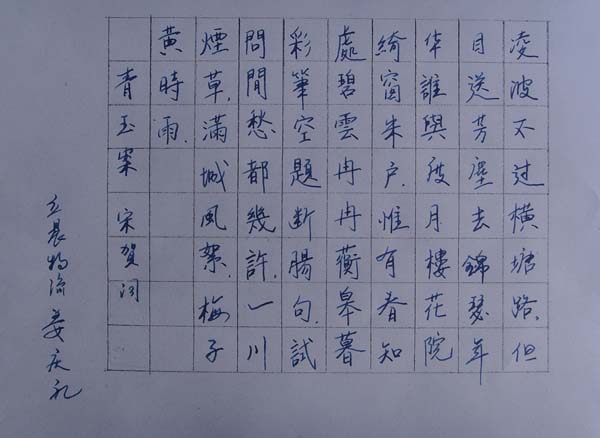 凌波不过横塘路.但
目送芳塵去錦瑟年
华誰與度月樓花院
綺窗朱户.惟有春知
處碧雲冉冉蘅皋暮
彩筆空題断腸句.試
問閒愁都幾許.一川
煙草.滿城風絮.梅子
黄時雨.
青玉案 宋賀词
立晨物流 姜庆礼